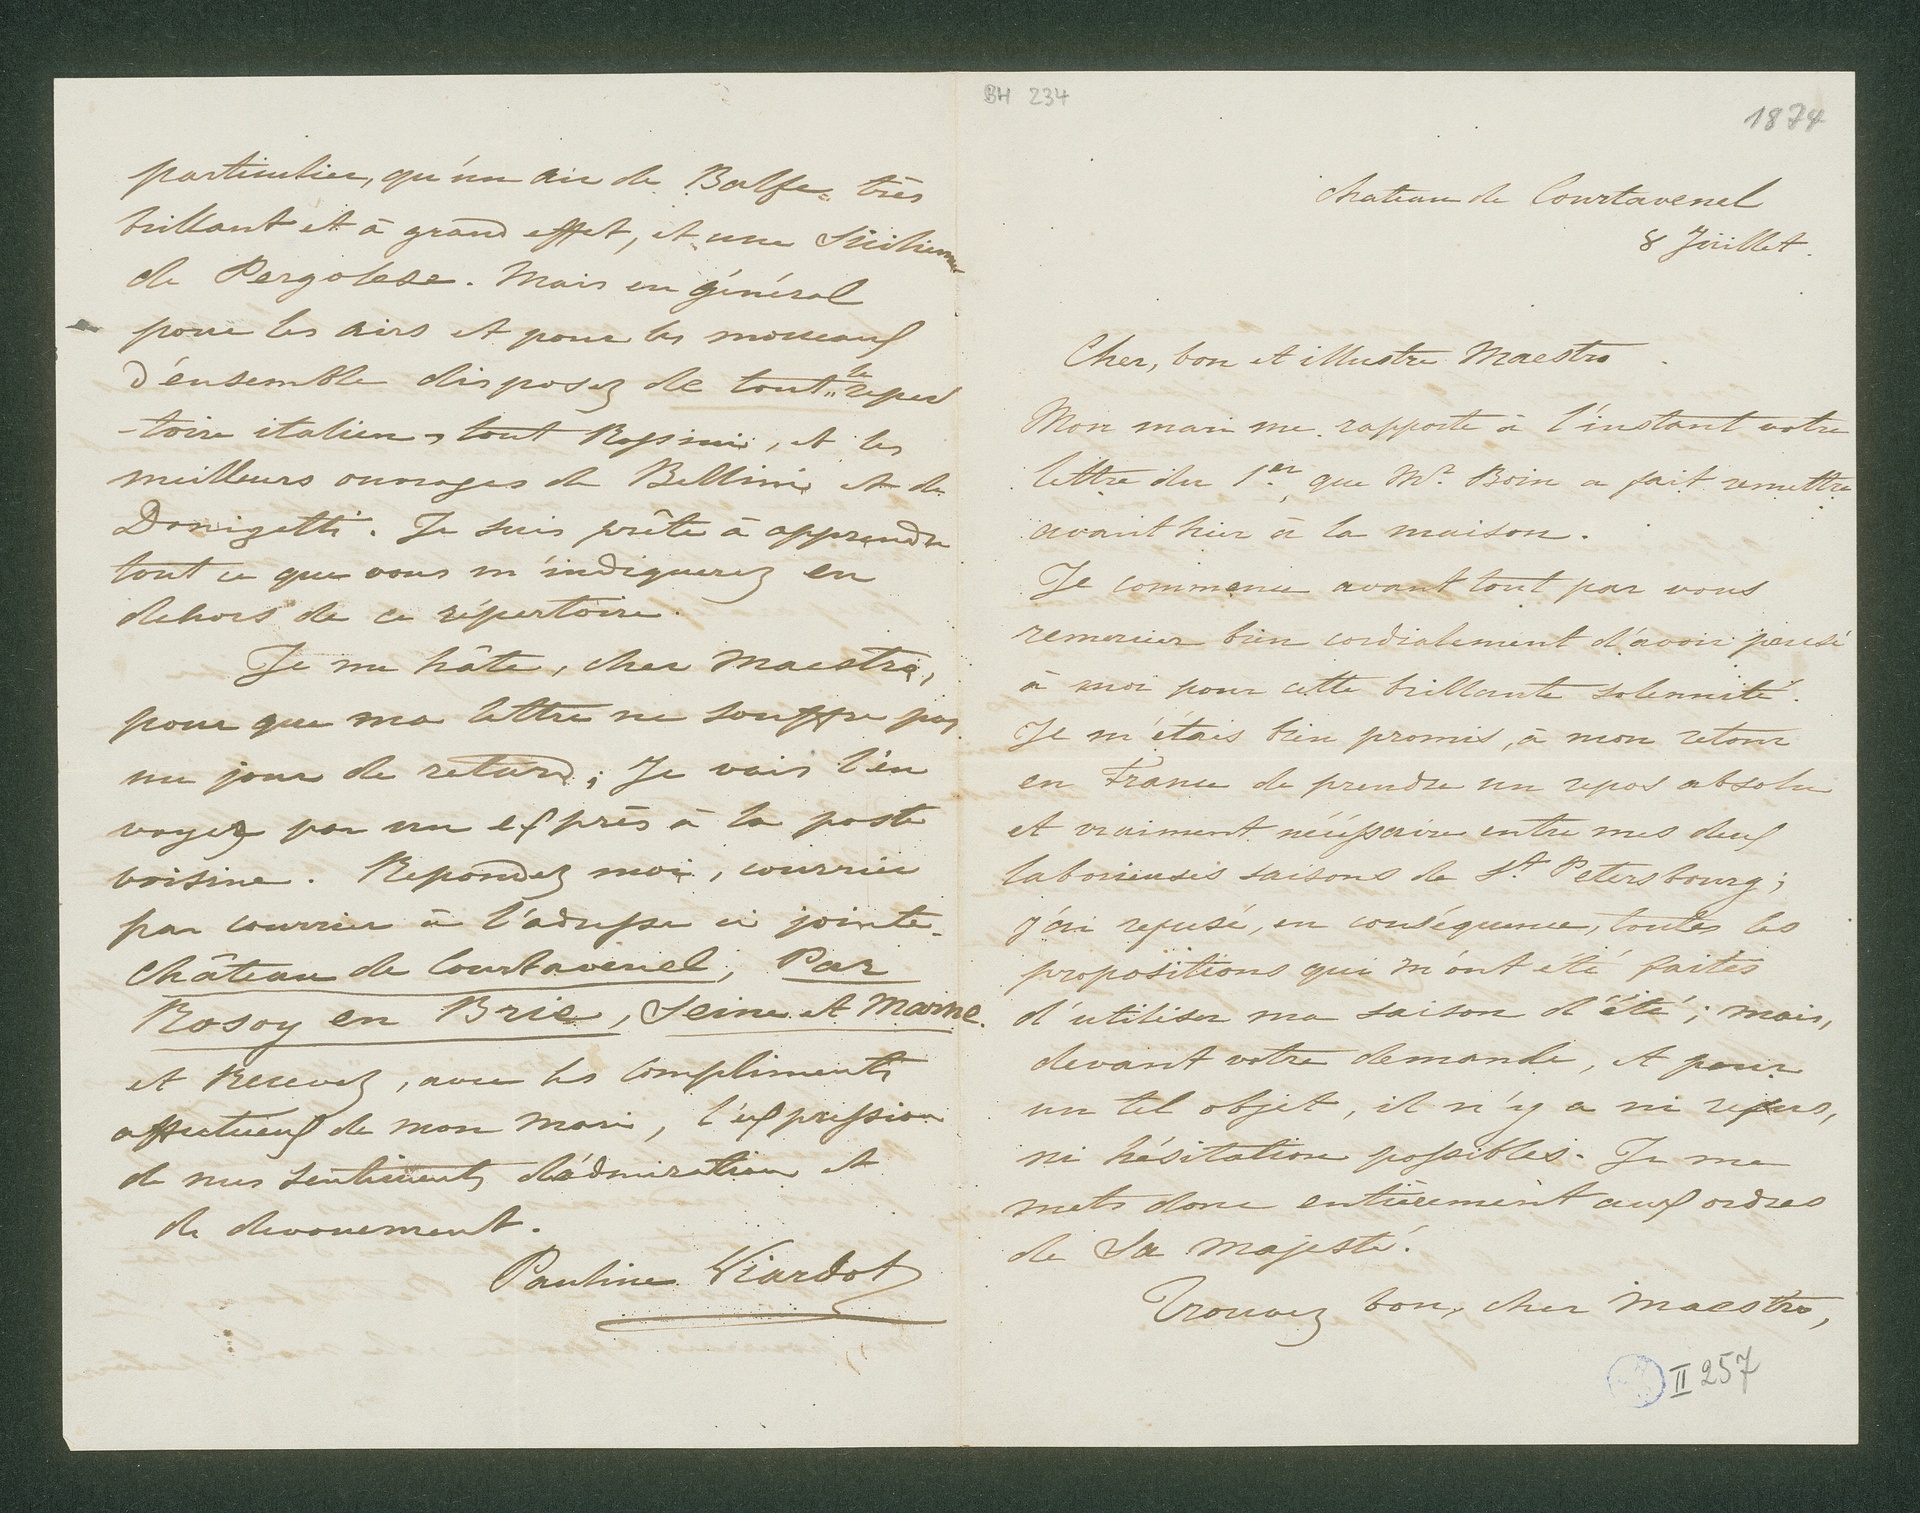 BH 234
1874
Chateau de Courtavenel
8 Juillet.
Cher, bon et illustre Maestro.
Mon mari me rapporte à l'instant votre
lettre du 1er, que Mr. Boin a fait remettre
avant hier à la maison.
Je commence avant tout par vous
remercier bien cordialement d'avoir pensé
à moi pour cette brillante solennité.
Je m'étais bien promis, à mon retour
en France de prendre un repos absolu
et vraiment nécessaire entre mes deux
laborieuses saisons de St Petersbourg;
j'ai refusé, en conséquence, toutes les
propositions qui m'ont été faites
d'utiliser ma saison d'été; mais,
devant votre demande, et pour
un tel objet, il n'y a ni refus,
ni hésitation possibles. Je me
mets donc entièrement aux ordres
de Sa Majesté.
Trouvez bon, cher Maestro,
II 257
particulier, qu'un air de Balfe, très
brillant et à grand effet, et une Sicilienne
de Pergolese. Mais en général
pour les airs et pour les morceaux
d'ensemble disposez de tout le reper
-toire italien, tout Rossini, et les
meilleurs ouvrages de Bellini et de
Donizetti. Je suis prête à apprendre
tout ce que vous m'indiquerez en
dehors de ce répertoire.
Je me hâte, cher Maestro,
pour que ma lettre ne souffre pas
un jour de retard; Je vais l'en
voyez par un exprès à la poste
voisine. Repondez moi, courrier
par courrier à l'adresse ci jointe.
Château de Courtavenel, Par
Rosoy en Brie, Seine et Marne.
et Recevez, avec les compliments
affectueux de mon mari, l'expression
de mes sentiments d'admiration et
de devouement.
Pauline Viardot